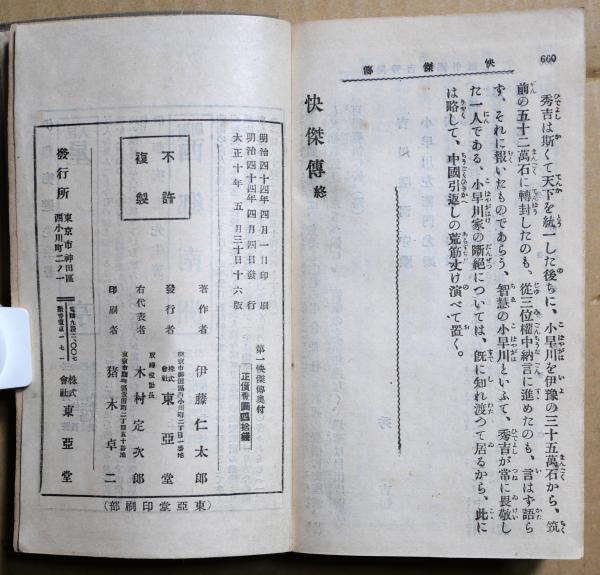 660
快傑傳
秀吉は斯くて天下を統一した後ちに、小早川を伊豫の三十五萬石から、筑
前の五十二萬石に轉封したのも、從三位權中納言に進めたのも、言はす語ら
す、それに報いたものであらう、智慧の小早川といふて、秀吉が常に畏敬し
た一人である、小早川家の斷絕については、既に知れ渡つて居るから、此に
は略して、中國引返しの荒筋丈け演べて置く。
快傑傳 終
明治四十四年四月一日印刷
明治四十四年四月四日發行
大正十年五月三十日十六版
第一快傑傳奧付
正價壹圓四拾錢
不許
複製
著作者 伊藤仁太郎
東京市神田區西小川町二丁目一番地
發行者 株式會社 東亞堂
右代表者 取締役社長 木村定次郎
印刷者 猪木卓二
發行所
東京市神田區
西小川町二ノ一
株式會社 東亞堂
(東亞堂印刷部)